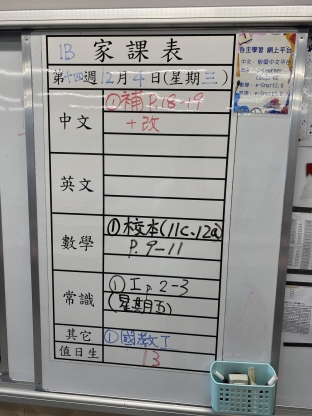 1B 家課表
第十四週12月4日(星期三)
中文
①補P.18-19
+改
英文
數學
①校本(11c、12a)
P.9-11
常識
①工p2-3
(星期五)
其它
①國教了
值日生
13
自主學習 網上平台